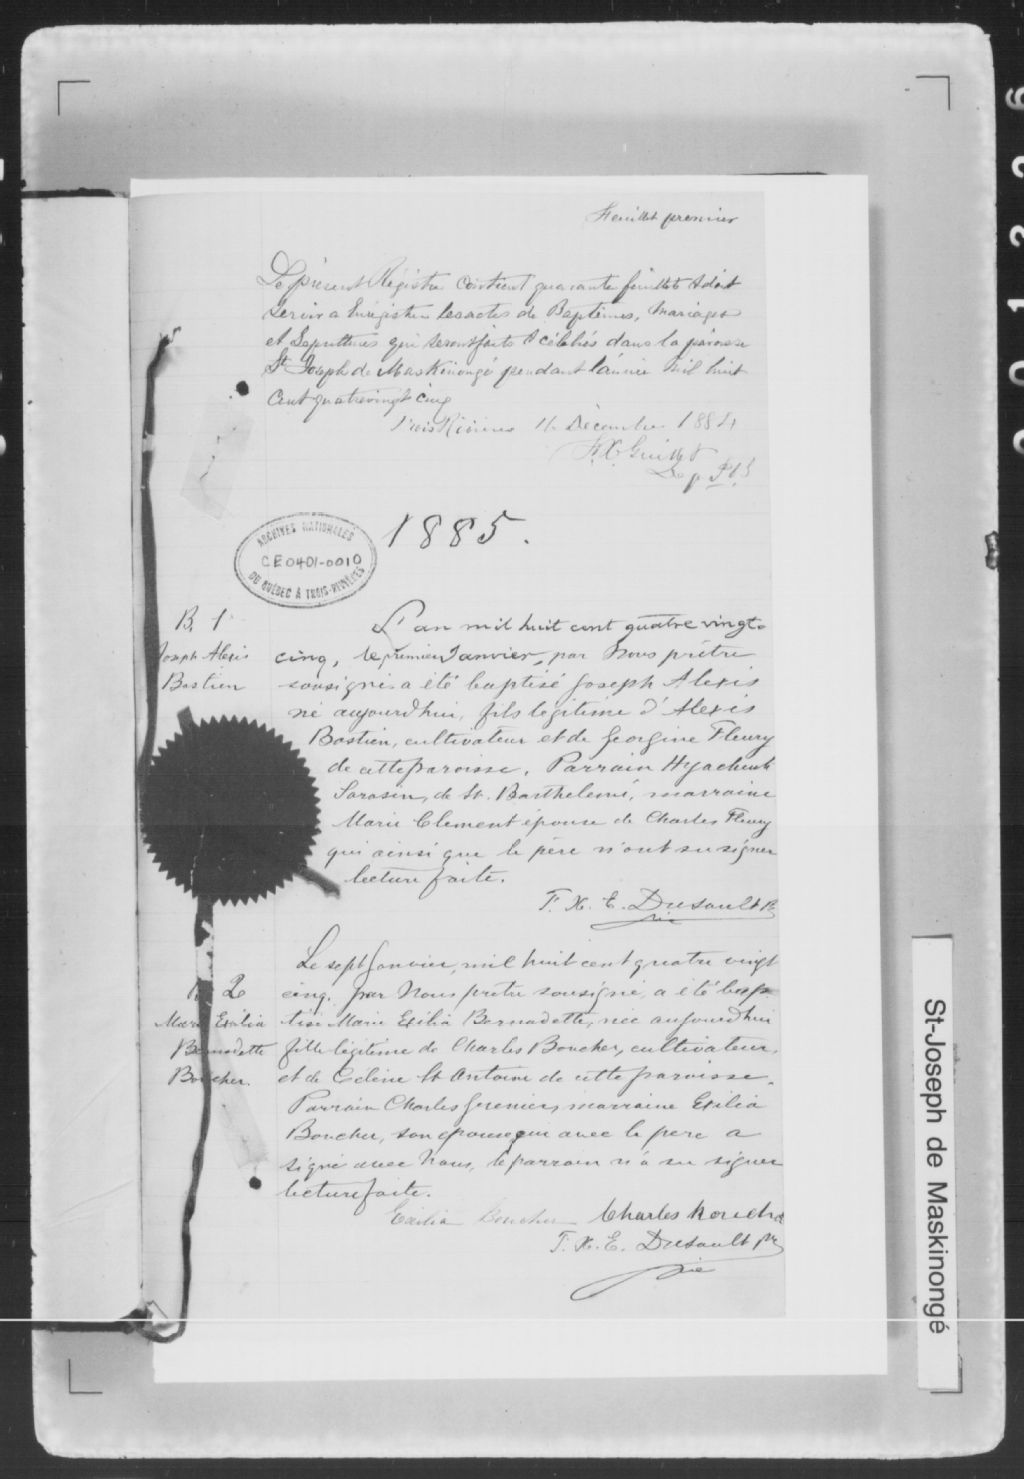 Feuillet premier
Le présent Régistre contient quarante feuillets & doit
servir a Enrégistrer les actes de Baptêmes, Mariages
et Sepultures qui seront faits & célébrés dans la paroisse
St Joseph de Maskinongé pendant l'année Mil huit
Cent quatrevingt cinq
Trois Rivières 16 Décembre 1884
F. X. Guillet
Dep P.C.S
1885.
ARCHIVES NATIONALES
CE0401-0010
DU QUÉBEC À TROIS-RIVIÈRES
B. 1
Joseph Alexis
Bastien
L'an mil huit cent quatre vingt-
cinq, le premier Janvier, par Nous prêtre
soussigné a été baptisé Joseph Alexis
né aujourd'hui, fils légitime d'Alexis
Bastien, cultivateur et de Georgine Fleury
de cette paroisse. Parrain Hyacinthe
Sarasin, de St. Barthelemé, marraine
Marie Clement épouse de Charles Fleury
qui ainsi que le père n'ont su signer
lecture faite.
F. X. E. Dusault Ptr
2
Marie Exilia
Bernadette
Boucher.
Le sept Janvier, mil huit cent quatre vingt
cinq. par Nous prêtre sousigné, a été bap
tisé Marie Exilia Bernadette, née aujourd'hui
fille légitime de Charles Boucher, cultivateur,
et de Celine St Antoine de cette paroisse.
Parrain Charles Grenier, marraine Exilia
Boucher, son épouse qui avec le père a
signé avec Nous, le parrain n'a su signer
lecture faite.
Exilia Boucher Charles Bouché
F. X. E. Dusault Ptr
St-Joseph de Maskinongé